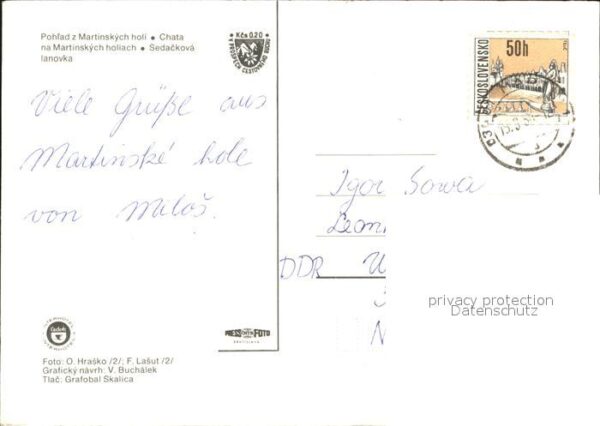 Pohľad z Martinských holí • Chata
na Martinských holiach • Sedačková
lanovka
Kčs 0,20
V PROSPECH CESTOVNÉHO RUCHU
ČESKOSLOVENSKO
50h
Viele Grüße aus
Martinské hole
von Miloš.
Igor Sowa
DDR
privacy protection
Datenschutz
PRESSFOTO
BRATISLAVA
Foto: O. Hraško /2/; F. Lašut /2/
Grafický návrh: V. Buchálek
Tlač: Grafobal Skalica